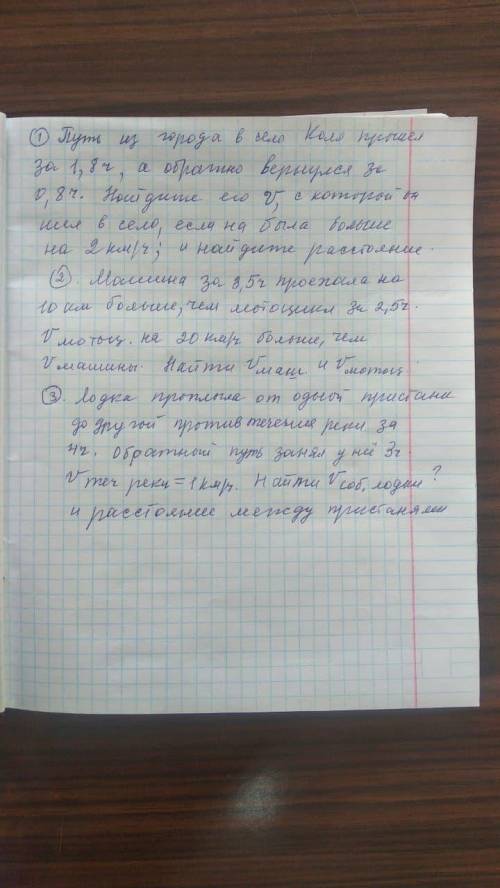 ① Путь из города в село Коля прошел
за 1,8ч, а обратно вернулся за
0,8ч. Найдите его V, с которой он
шел в село, если на была больше
на 2 км/ч; и найдите расстояние.
②. Машина за 3,5ч проехала на
10 км больше, чем мотоцикл за 2,5ч.
Vмотоц. на 20 км/ч больше, чем
Vмашины. Найти Vмаш и Vмотоц.
③. Лодка проплыла от одной пристани
до другой против течения реки за
4ч. Обратный путь занял у неё 3ч.
Vтеч реки = 1 км/ч. Найти Vсоб. лодки?
и расстояние между пристанями